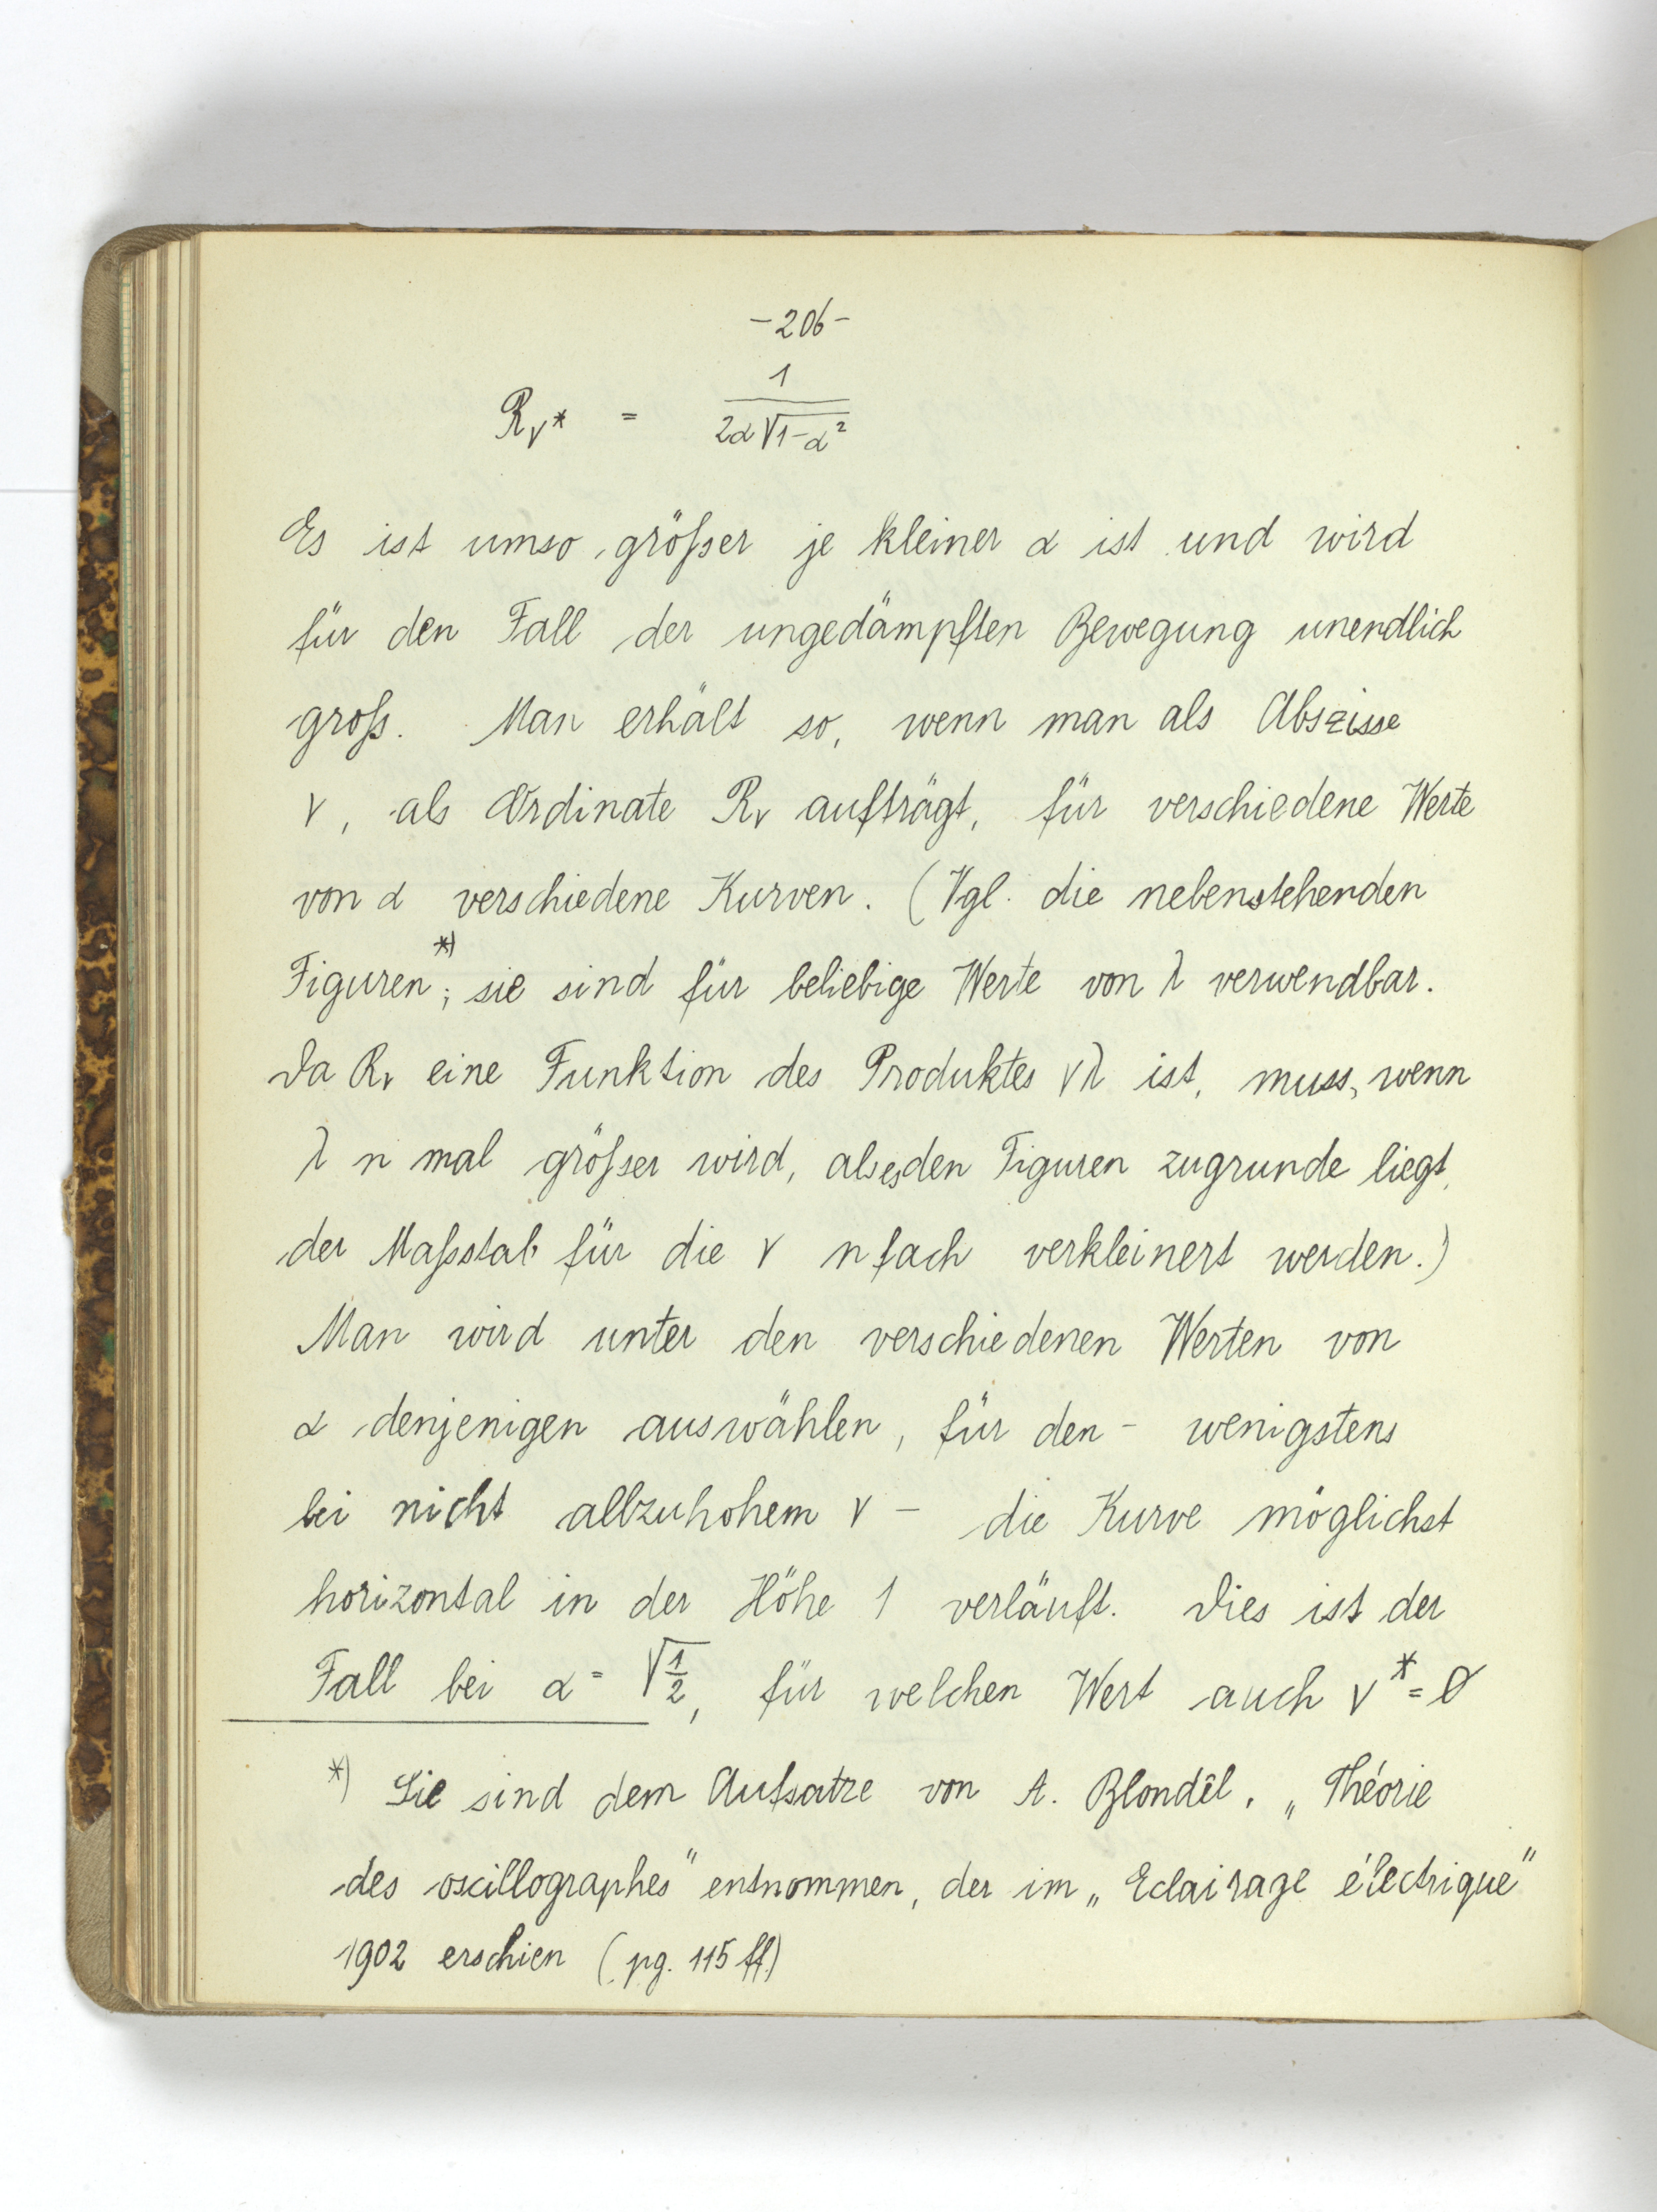 -206-
R_ν* = 1 / 2α√1-α²
Es ist umso größer je kleiner α ist und wird
für den Fall der ungedämpften Bewegung unendlich
groß. Man erhält so, wenn man als Abszisse
ν, als Ordinate Rν aufträgt, für verschiedene Werte
von α verschiedene Kurven. (Vgl. die nebenstehenden
Figuren*); sie sind für beliebige Werte von λ verwendbar.
Da Rν eine Funktion des Produktes νλ ist, muss, wenn
λ n mal größer wird, als es den Figuren zugrunde liegt,
der Maßstab für die ν n fach verkleinert werden.)
Man wird unter den verschiedenen Werten von
α denjenigen auswählen, für den - wenigstens
bei nicht allzuhohem ν - die Kurve möglichst
horizontal in der Höhe 1 verläuft. Dies ist der
Fall bei α = √1/2, für welchen Wert auch ν* = 0
*) Sie sind dem Aufsatze von A. Blondêl, „Théorie
des oscillographes" entnommen, der im „Eclairage électrique"
1902 erschien (pg. 115 ff.)